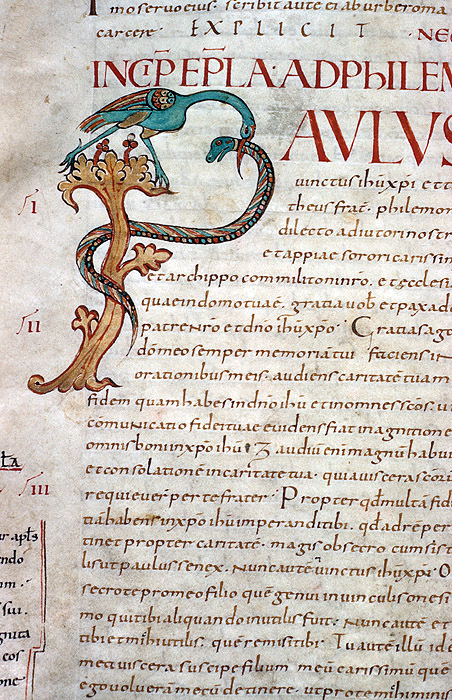 moservoeius. scribitaute ei aburberoma
carcere. EXPLICIT · NEC
INCIP EPLA·ADPHILEM
AVLVS
uinctusihuxpi etti
theusfrat. philemon
dilecto adiutorinostr
etappiae sororicarissim
etarchippo commilitoninro. etecclesi
quaeindomotuae. gratiauob etpaxado
patrenro etdno ihuxpo· Gratiasago
domeosemper memoriamtui faciensin
orationibusmeis. audiens caritatetuam
fidem quamhabesindno ihu etinomnesscos. ut
comunicatio fideituae euidensfiat inagnitione
omnisboniinxpo ihu audiuenimmagnumhabui
etconsolationē incaritatetua· quiauiscerascoru
requieuer pertefrater· Propter qdmultafidu
tiāhabensinxpo ihuimperanditibi. qdadreper
tinet propter caritatē. magisobsecro cumsist
lisutpaulussenex. Nuncauteuinctus ihuxpi· O
secrotepromeofilio quegenui inuinculisonesi
mo quitibialiquandoinutilisfuit· Nuncaute et
tibietmihiutilis. queremisitibi· Tuautēillum ide
meauiscera suscipefilium meū carissimū que
egouoluerā mecūdetinere. utprotemihiminis
I
II
III